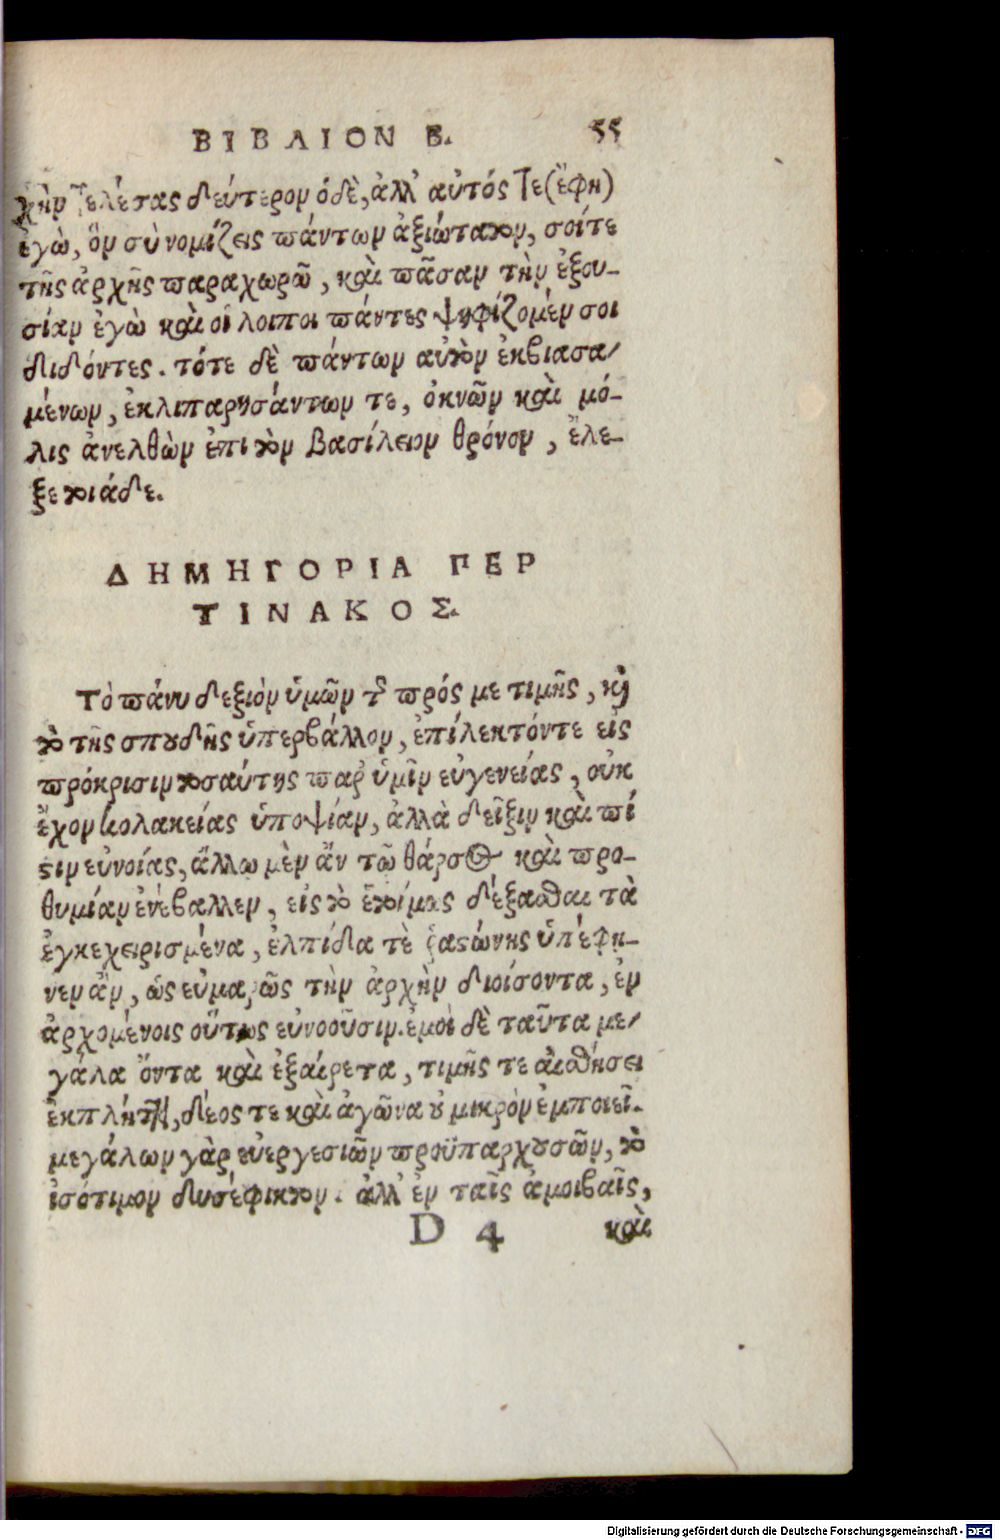 ΒΙΒΛΙΟΝ Β. 55
χὴν τελέσας δεύτερον ὁδὲ, ἀλλ' αὐτός τε (ἔφη)
ἐγὼ, ὃν σὺ νομίζεις πάντων ἀξιώτατον, σοί τε
τῆς ἀρχῆς παραχωρῶ, καὶ πᾶσαν τὴν ἐξου-
σίαν ἐγὼ καὶ οἱ λοιποι πάντες ψηφίζομέν σοι
διδόντες. τότε δὲ πάντων αὐτὸν ἐκβιασα/
μένων, ἐκλιπαρησάντων τε, ὀκνῶν καὶ μό-
λις ἀνελθὼν ἐπι τὸν βασίλειον θρόνον, ἔλε-
ξε τοιάδε.
ΔΗΜΗΓΟΡΙΑ ΠΕΡ
ΤΙΝΑΚΟΣ.
Τὸ πάνυ δεξιὸν ὑμῶν τῆς πρός με τιμῆς, καὶ
τὸ τῆς σπουδῆς ὑπερβάλλον, ἐπίλεκτόν τε εἰς
πρόκρισιν τοσαύτης παρ' ὑμῖν εὐγενείας, οὐκ
ἔχον κολακείας ὑποψίαν, ἀλλὰ δεῖξιν καὶ πί
στιν εὐνοίας, ἄλλῳ μὲν ἂν τῷ θάρσος καὶ προ-
θυμίαν ἐνέβαλλεν, εἰς τὸ ἑτοίμως δέξασθαι τὰ
ἐγκεχειρισμένα, ἐλπίδα τὲ ῥαστώνης ὑπέφη-
νεν ἂν, ὡς εὐμαρῶς τὴν ἀρχὴν διοίσοντα, ἐν
ἀρχομένοις οὕτως εὐνοοῦσιν. ἐμοὶ δὲ ταῦτα με/
γάλα ὄντα καὶ ἐξαίρετα, τιμῆς τε αἰσθήσει
ἐκπλήττει, δέος τε καὶ ἀγῶνα οὐ μικρὸν ἐμποιεῖ.
μεγάλων γὰρ εὐεργεσιῶν προϋπαρχουσῶν, τὸ
ἰσότιμον δυσέφικτον. ἀλλ' ἐν ταῖς ἀμοιβαῖς,
D 4 καὶ
Digitalisierung gefördert durch die Deutsche Forschungsgemeinschaft - DFG